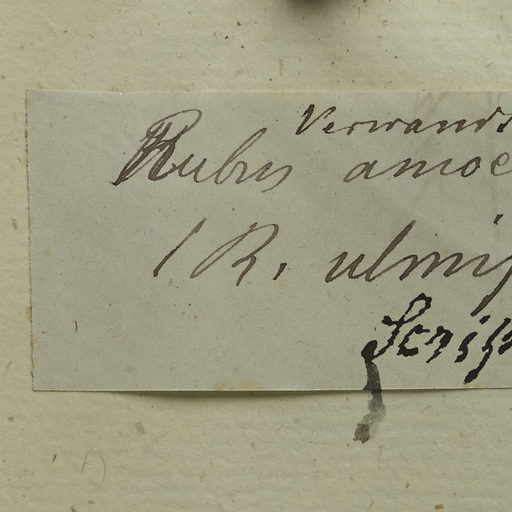 Verwandt
Rubus amoe
(R. ulmif
Scrips